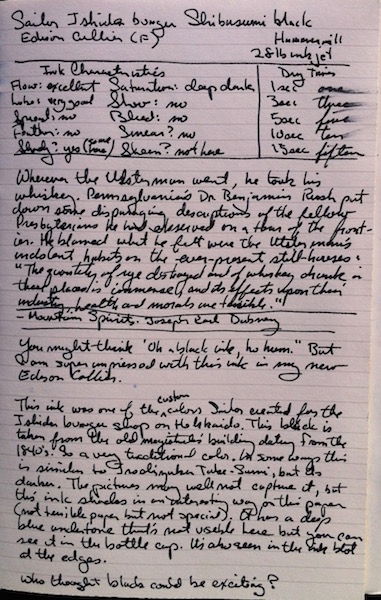 Sailor Ishida bungu Shibusumi black
Edison Collier (F) Hammermill
28 lb inkjet
Ink Characteristics Dry Times
Flow: excellent Saturation: deep dark 1 sec one
Lube: very good Show: no 3 sec three
Spread: no Bleed: no 5 sec five
Feather: no Smear? no 10 sec ten
Shady? yes (some) Sheen? not here 15 sec fifteen
Wherever the Ulsterman went, he took his
whiskey. Pennsylvania's Dr. Benjamin Rush put
down some disparaging descriptions of the fellow
Presbyterians he had observed on a tour of the front-
ier. He blamed what he felt were the Ulsterman's
indolent habits on the ever-present still-houses:
"The quantity of rye destroyed and of whiskey drunk in
these places is immense, and its effects upon their
industry, health and morals are terrible."
- Mountain Spirits. Joseph Earl Dabney
You might think 'Oh a black ink, ho hum." But
I am super impressed with this ink in my new
Edison Collier.
This ink was one of the custom colors Sailor created for the
Ishida bungu shop on Hokkaido. This black is
taken from the old magistrate's building dating from the
1840's. So a very traditional color. In some ways this
is similar to Iroshizuku Take-Sumi, but its
darker. The pictures may well not capture it, but
this ink shades in an interesting way on this paper
(not terrible paper but not special). It has a deep
blue undertone that's not visible here but you can
see it in the bottle cap. It's also seen in the ink blot
at the edges.
Who thought blacks could be exciting?